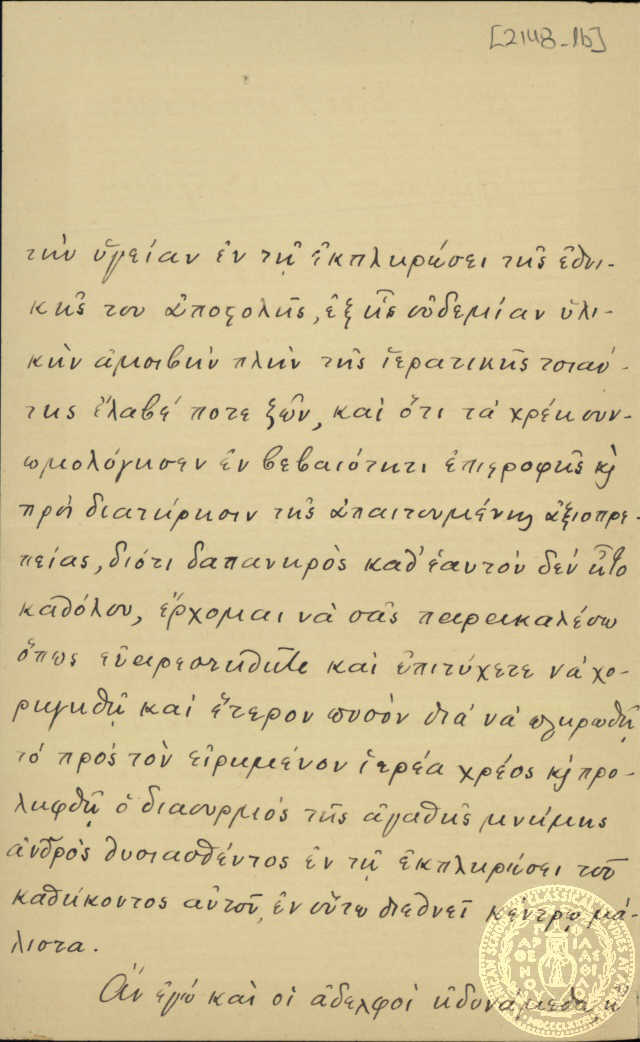 [2148-1b]
τὴν ὑγείαν ἐν τῇ ἐκπληρώσει τῆς ἐθνι-
κῆς του ἀποστολῆς, ἐξ ἧς οὐδεμίαν ὑλι-
κὴν ἀμοιβὴν πλὴν τῆς ἱερατικῆς τοιαύ-
της ἔλαβέ ποτε ζῶν, καὶ ὅτι τὰ χρέη συν-
ωμολόγησεν ἐν βεβαιότητι ἐπιστροφῆς κ
πρὸς διατήρησιν τῆς ἀπαιτουμένης ἀξιοπρε-
πείας, διότι δαπανηρὸς καθ' ἑαυτὸν δὲν ἦτο
καθόλου, ἔρχομαι νὰ σᾶς παρακαλέσω
ὅπως εὐαρεστηθῆτε καὶ ἐπιτύχετε νὰ χο-
ρηγηθῇ καὶ ἕτερον ποσὸν διὰ νὰ πληρωθῇ
τὸ πρὸς τὸν εἰρημένον ἱερέα χρέος κ προ-
ληφθῇ ὁ διασυρμὸς τῆς ἀγαθῆς μνήμης
ἀνδρὸς θυσιασθέντος ἐν τῇ ἐκπληρώσει τοῦ
καθήκοντος αὐτοῦ, ἐν οὕτω διεθνεῖ κέντρῳ μά-
λιστα.
Ἂν ἐγὼ καὶ οἱ ἀδελφοὶ ἠδυνάμεθα